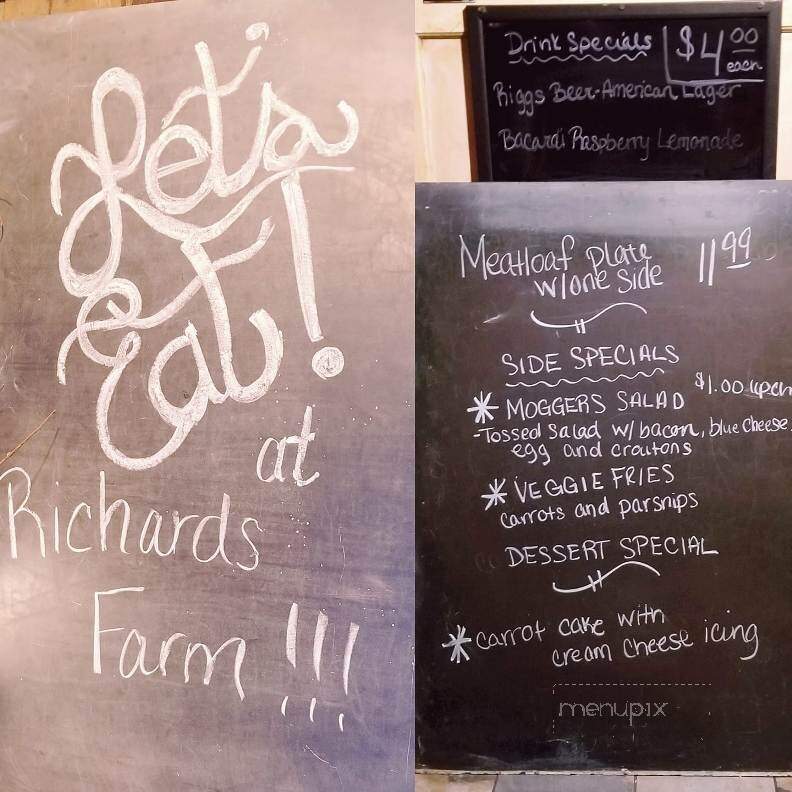 Let's
Eat!
at
Richards
Farm!!!
Drink Specials $4.00 each
Riggs Beer-American Lager
Bacardi Raspberry Lemonade
Meatloaf Plate 11.99
w/one side
SIDE SPECIALS
* MOGGERS SALAD $1.00 upch
-Tossed Salad w/ bacon, blue cheese,
egg and croutons
* VEGGIE FRIES
carrots and parsnips
DESSERT SPECIAL
* carrot cake with
cream cheese icing
menupix